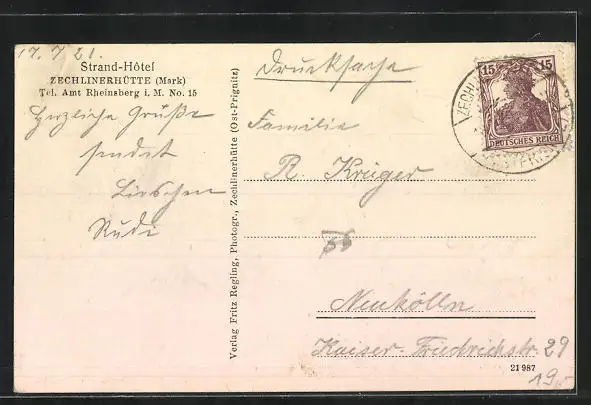 17. 7. 21.
Strand-Hôtel
ZECHLINERHÜTTE (Mark)
Tel. Amt Rheinsberg i. M. No. 15
Herzliche Grüße
sendet
Lieschen
Rudi
Verlag Fritz Regling, Photogr., Zechlinerhütte (Ost-Prignitz)
Drucksache
Familie
R. Krüger
Neukölln
Kaiser-Friedrichstr. 29
15 15
DEUTSCHES REICH
ZECHL
21987
19,-